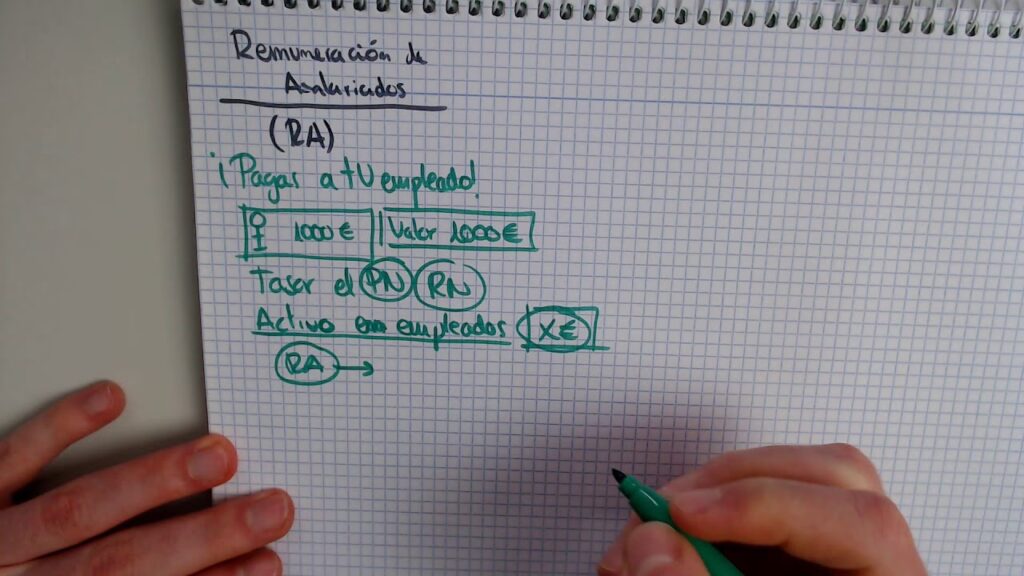 Remuneración de
Asalariados
(RA)
¡Pagas a tu empleado!
1000 € Valor 1000 €
Tasar el PN RN
Activo en empleados X€
RA →